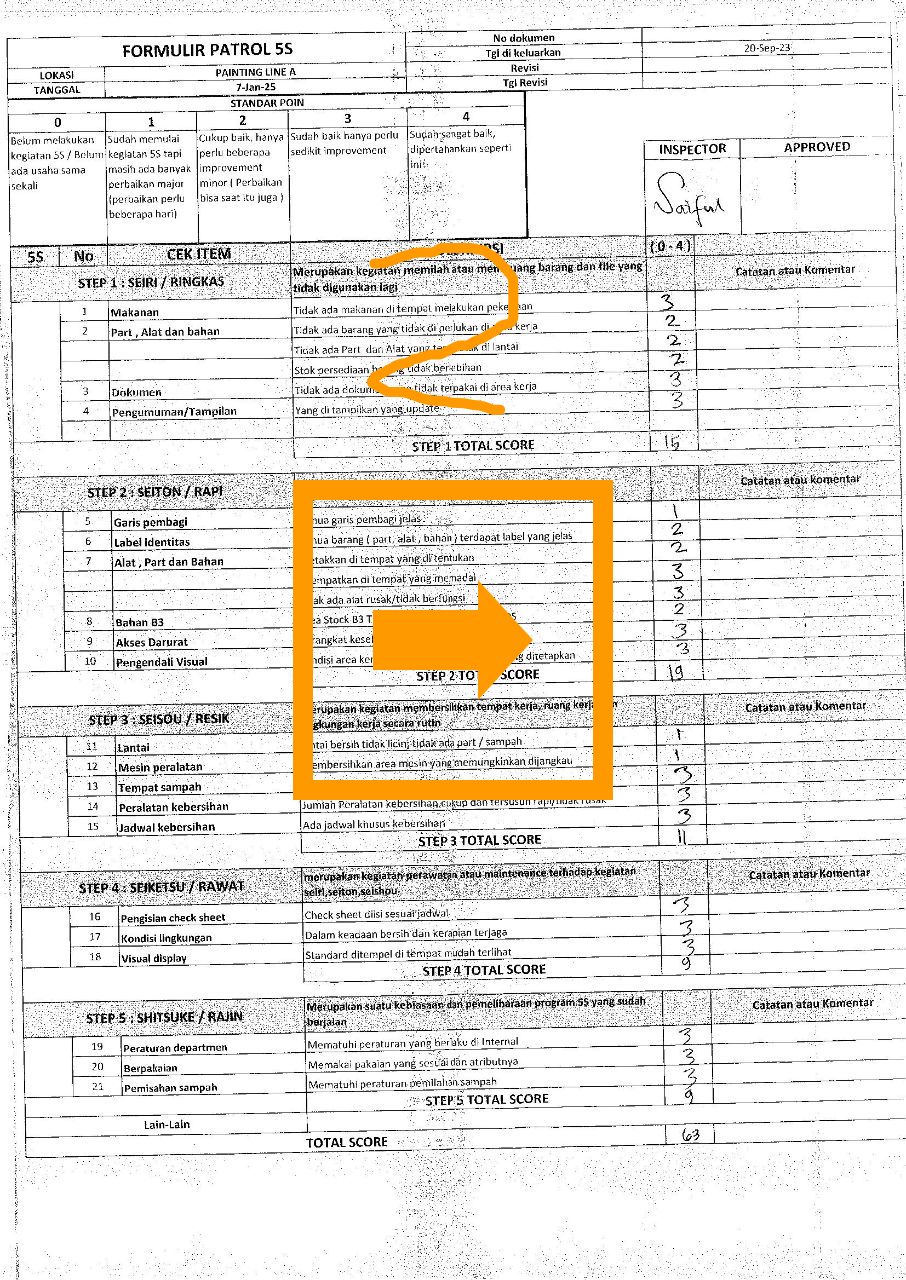 FORMULIR PATROL 5S
No dokumen
Tgl di keluarkan 20-Sep-23
Revisi
Tgl Revisi
LOKASI PAINTING LINE A
TANGGAL 7-Jan-25
STANDAR POIN
0 1 2 3 4
Belum melakukan kegiatan 5S / Belum ada usaha sama sekali
Sudah memulai kegiatan 5S tapi masih ada banyak perbaikan major (perbaikan perlu beberapa hari)
Cukup baik, hanya perlu beberapa improvement minor ( Perbaikan bisa saat itu juga )
Sudah baik hanya perlu sedikit improvement
Sudah sangat baik, dipertahankan seperti ini
INSPECTOR APPROVED
Saiful
5S No CEK ITEM (0-4)
STEP 1 : SEIRI / RINGKAS Merupakan kegiatan memilah atau barang dan file yang tidak digunakan lagi Catatan atau Komentar
1 Makanan Tidak ada makanan di tempat melakukan 3
2 Part , Alat dan bahan Tidak ada barang yang tidak di perlukan di kerja 2
Tidak ada Part dan Alat yang di lantai 2
Stok persediaan tidak berlebihan 2
3 Dokumen Tidak ada tidak terpakai di area kerja 3
4 Pengumuman/Tampilan Yang di tampilkan yang update 3
STEP 1 TOTAL SCORE 15
STEP 2 : SEITON / RAPI Catatan atau komentar
5 Garis pembagi garis pembagi jelas 1
6 Label Identitas barang ( part, alat , bahan ) terdapat label yang jelas 2
7 Alat , Part dan Bahan di tempat yang di tentukan 2
di tempat yang memadai 3
ada alat rusak/tidak berfungsi 3
8 Bahan B3 Stock B3 2
9 Akses Darurat 3
10 Pengendali Visual area ditetapkan 3
STEP 2 SCORE 19
STEP 3 : SEISOU / RESIK kegiatan membersihkan tempat kerja, ruang kerja kerja secara rutin Catatan atau Komentar
11 Lantai bersih tidak licin, tidak ada part / sampah 1
12 Mesin peralatan area mesin yang memungkinkan dijangkau 1
13 Tempat sampah 3
14 Peralatan kebersihan Jumlah Peralatan kebersihan cukup dan tersusun rapi/tidak rusak 3
15 Jadwal kebersihan Ada jadwal khusus kebersihan 3
STEP 3 TOTAL SCORE 11
STEP 4 : SEIKETSU / RAWAT merupakan kegiatan perawatan atau maintenance terhadap kegiatan seiri,seiton,seishou Catatan atau Komentar
16 Pengisian check sheet Check sheet diisi sesuai jadwal 3
17 Kondisi lingkungan Dalam keadaan bersih dan kerapian terjaga 3
18 Visual display Standard ditempel di tempat mudah terlihat 3
STEP 4 TOTAL SCORE 9
STEP 5 : SHITSUKE / RAJIN Merupakan suatu kebiasaan dan pemeliharaan program 5S yang sudah berjalan Catatan atau Komentar
19 Peraturan departmen Mematuhi peraturan yang berlaku di Internal 3
20 Berpakaian Memakai pakaian yang sesuai dan atributnya 3
21 Pemisahan sampah Mematuhi peraturan pemilahan sampah 3
STEP 5 TOTAL SCORE 9
Lain-Lain
TOTAL SCORE 63